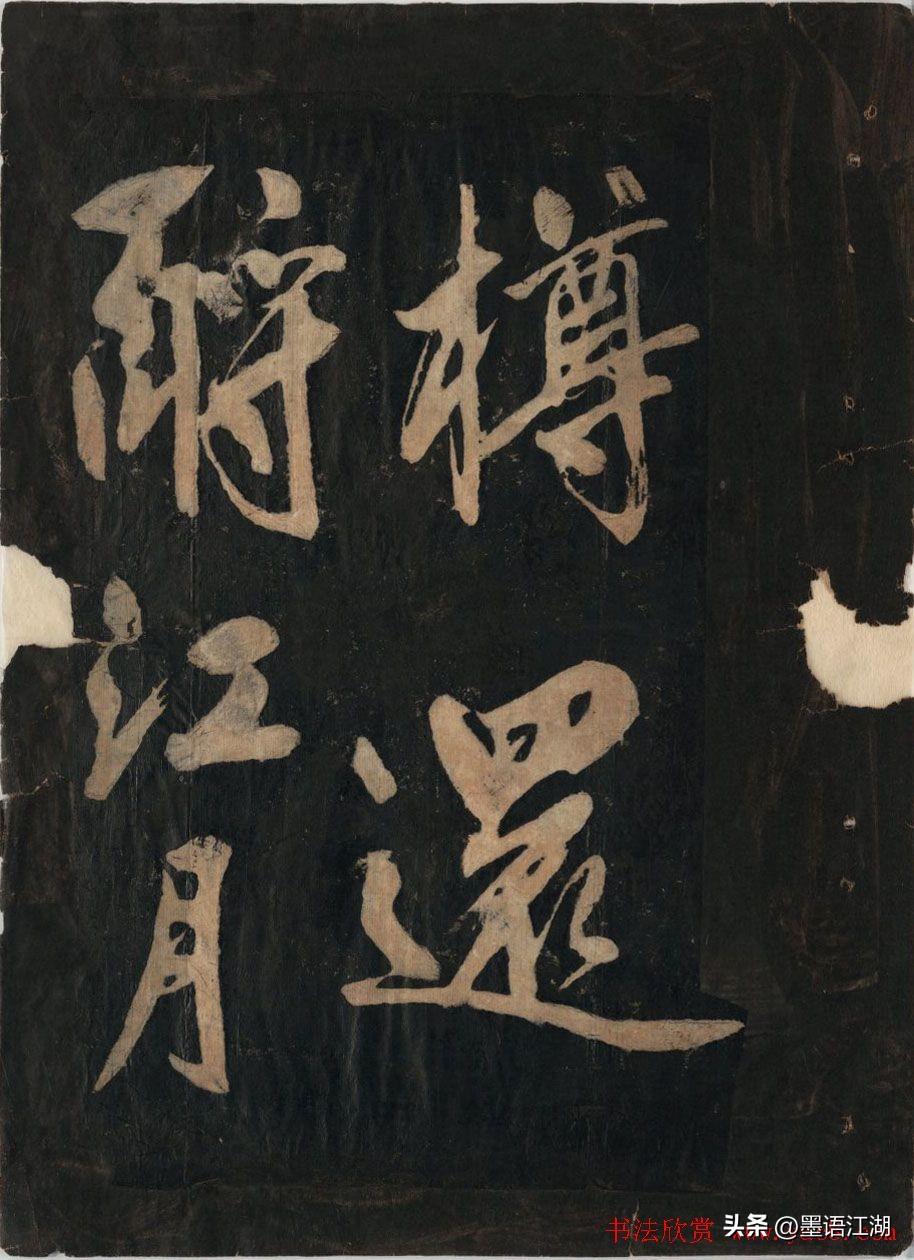 樽還
酹江月
书法欣赏
头条 @墨语江湖